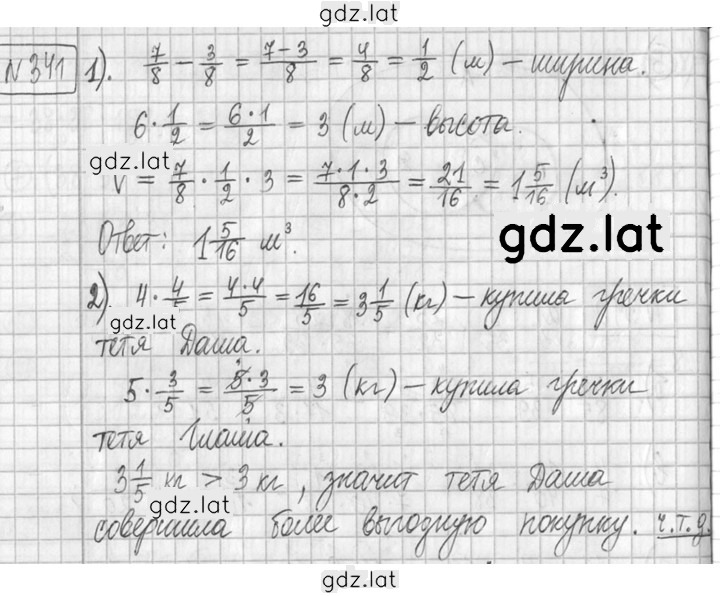 gdz.lat
N 341 1). 7/8 − 3/8 = (7−3)/8 = 4/8 = 1/2 (м) – ширина.
6 · 1/2 = (6·1)/2 = 3 (м) – высота.
gdz.lat
V = 7/8 · 1/2 · 3 = (7·1·3)/(8·2) = 21/16 = 1 5/16 (м³).
gdz.lat
Ответ: 1 5/16 м³.
2). 4 · 4/5 = (4·4)/5 = 16/5 = 3 1/5 (кг) – купила гречки
gdz.lat
тетя Даша.
5 · 3/5 = (5·3)/5 = 3 (кг) – купила гречки
тетя Глаша.
3 1/5 кг > 3 кг, значит тетя Даша
gdz.lat
совершила более выгодную покупку. ч.т.д.
gdz.lat